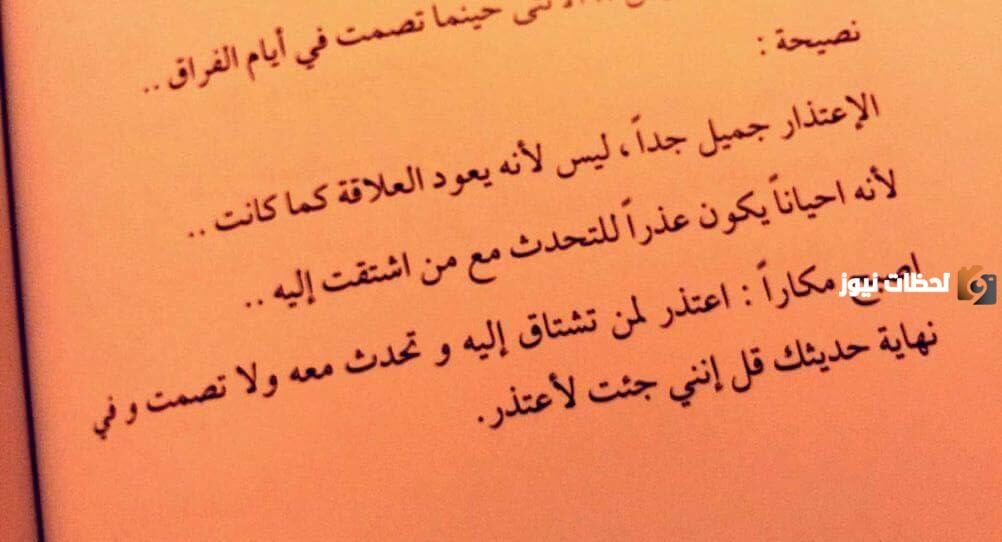 الأنثى حينما تصمت في أيام الفراق ..
نصيحة :
الإعتذار جميل جداً ، ليس لأنه يعود العلاقة كما كانت ..
لأنه احياناً يكون عذراً للتحدث مع من اشتقت إليه ..
مكاراً : اعتذر لمن تشتاق إليه و تحدث معه ولا تصمت و في
نهاية حديثك قل إنني جئت لأعتذر.
لحظات نيوز